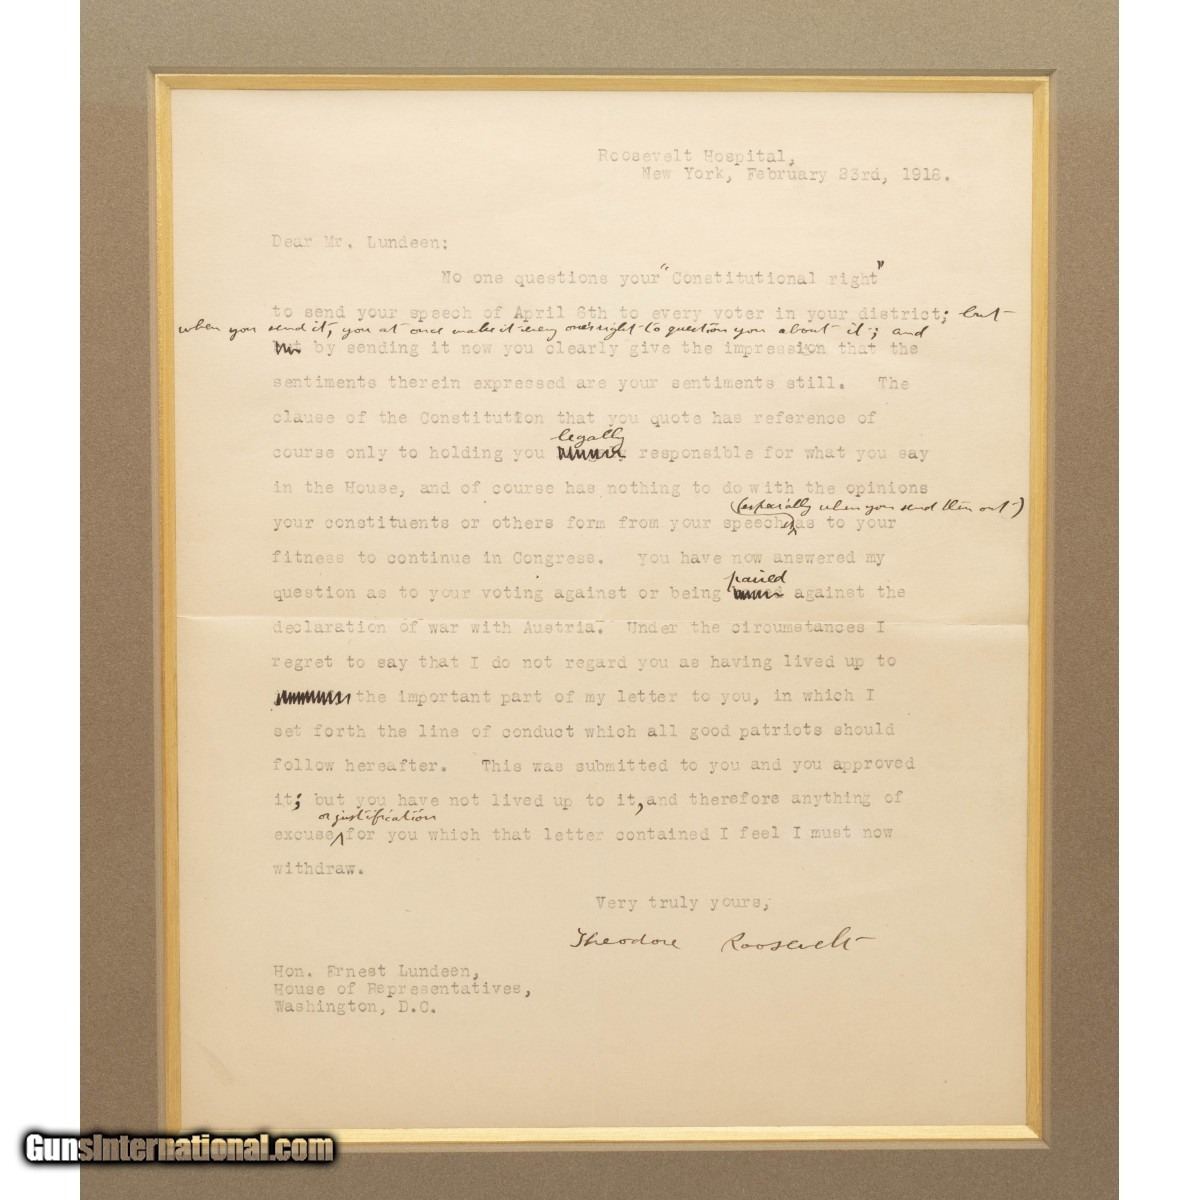 Roosevelt Hospital,
New York, February 23rd, 1918.
Dear Mr. Lundeen:
No one questions your "Constitutional right"
to send your speech of April 6th to every voter in your district; but
when you send it, you at once make it every one's right to question you about it; and
by sending it now you clearly give the impression that the
sentiments therein expressed are your sentiments still. The
clause of the Constitution that you quote has reference of
legally
course only to holding you responsible for what you say
in the House, and of course has nothing to do with the opinions
(especially when you send them out)
your constituents or others form from your speech as to your
fitness to continue in Congress. You have now answered my
paired
question as to your voting against or being against the
declaration of war with Austria. Under the circumstances I
regret to say that I do not regard you as having lived up to
the important part of my letter to you, in which I
set forth the line of conduct which all good patriots should
follow hereafter. This was submitted to you and you approved
it; but you have not lived up to it, and therefore anything of
or justification
excuse for you which that letter contained I feel I must now
withdraw.
Very truly yours,
Theodore Roosevelt
Hon. Ernest Lundeen,
House of Representatives,
Washington, D.C.
GunsInternational.com